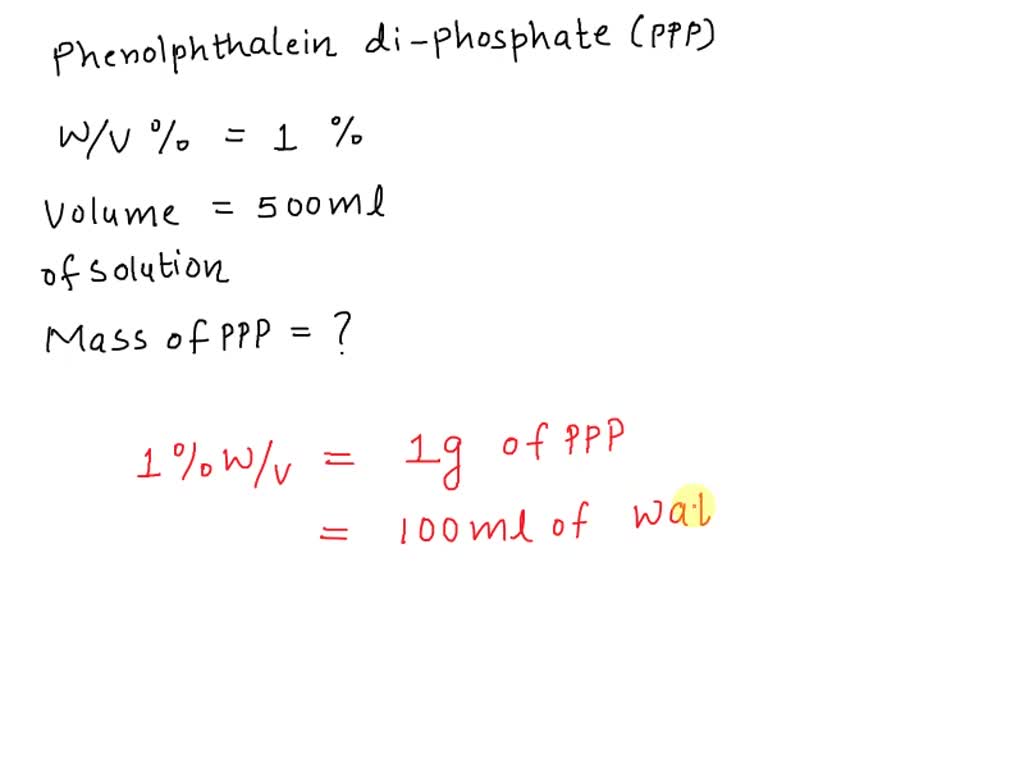 Phenolphthalein di-phosphate (PPP)
W/V % = 1 %
Volume = 500ml
of solution
Mass of PPP = ?
1% W/V = 1g of PPP
= 100ml of wat